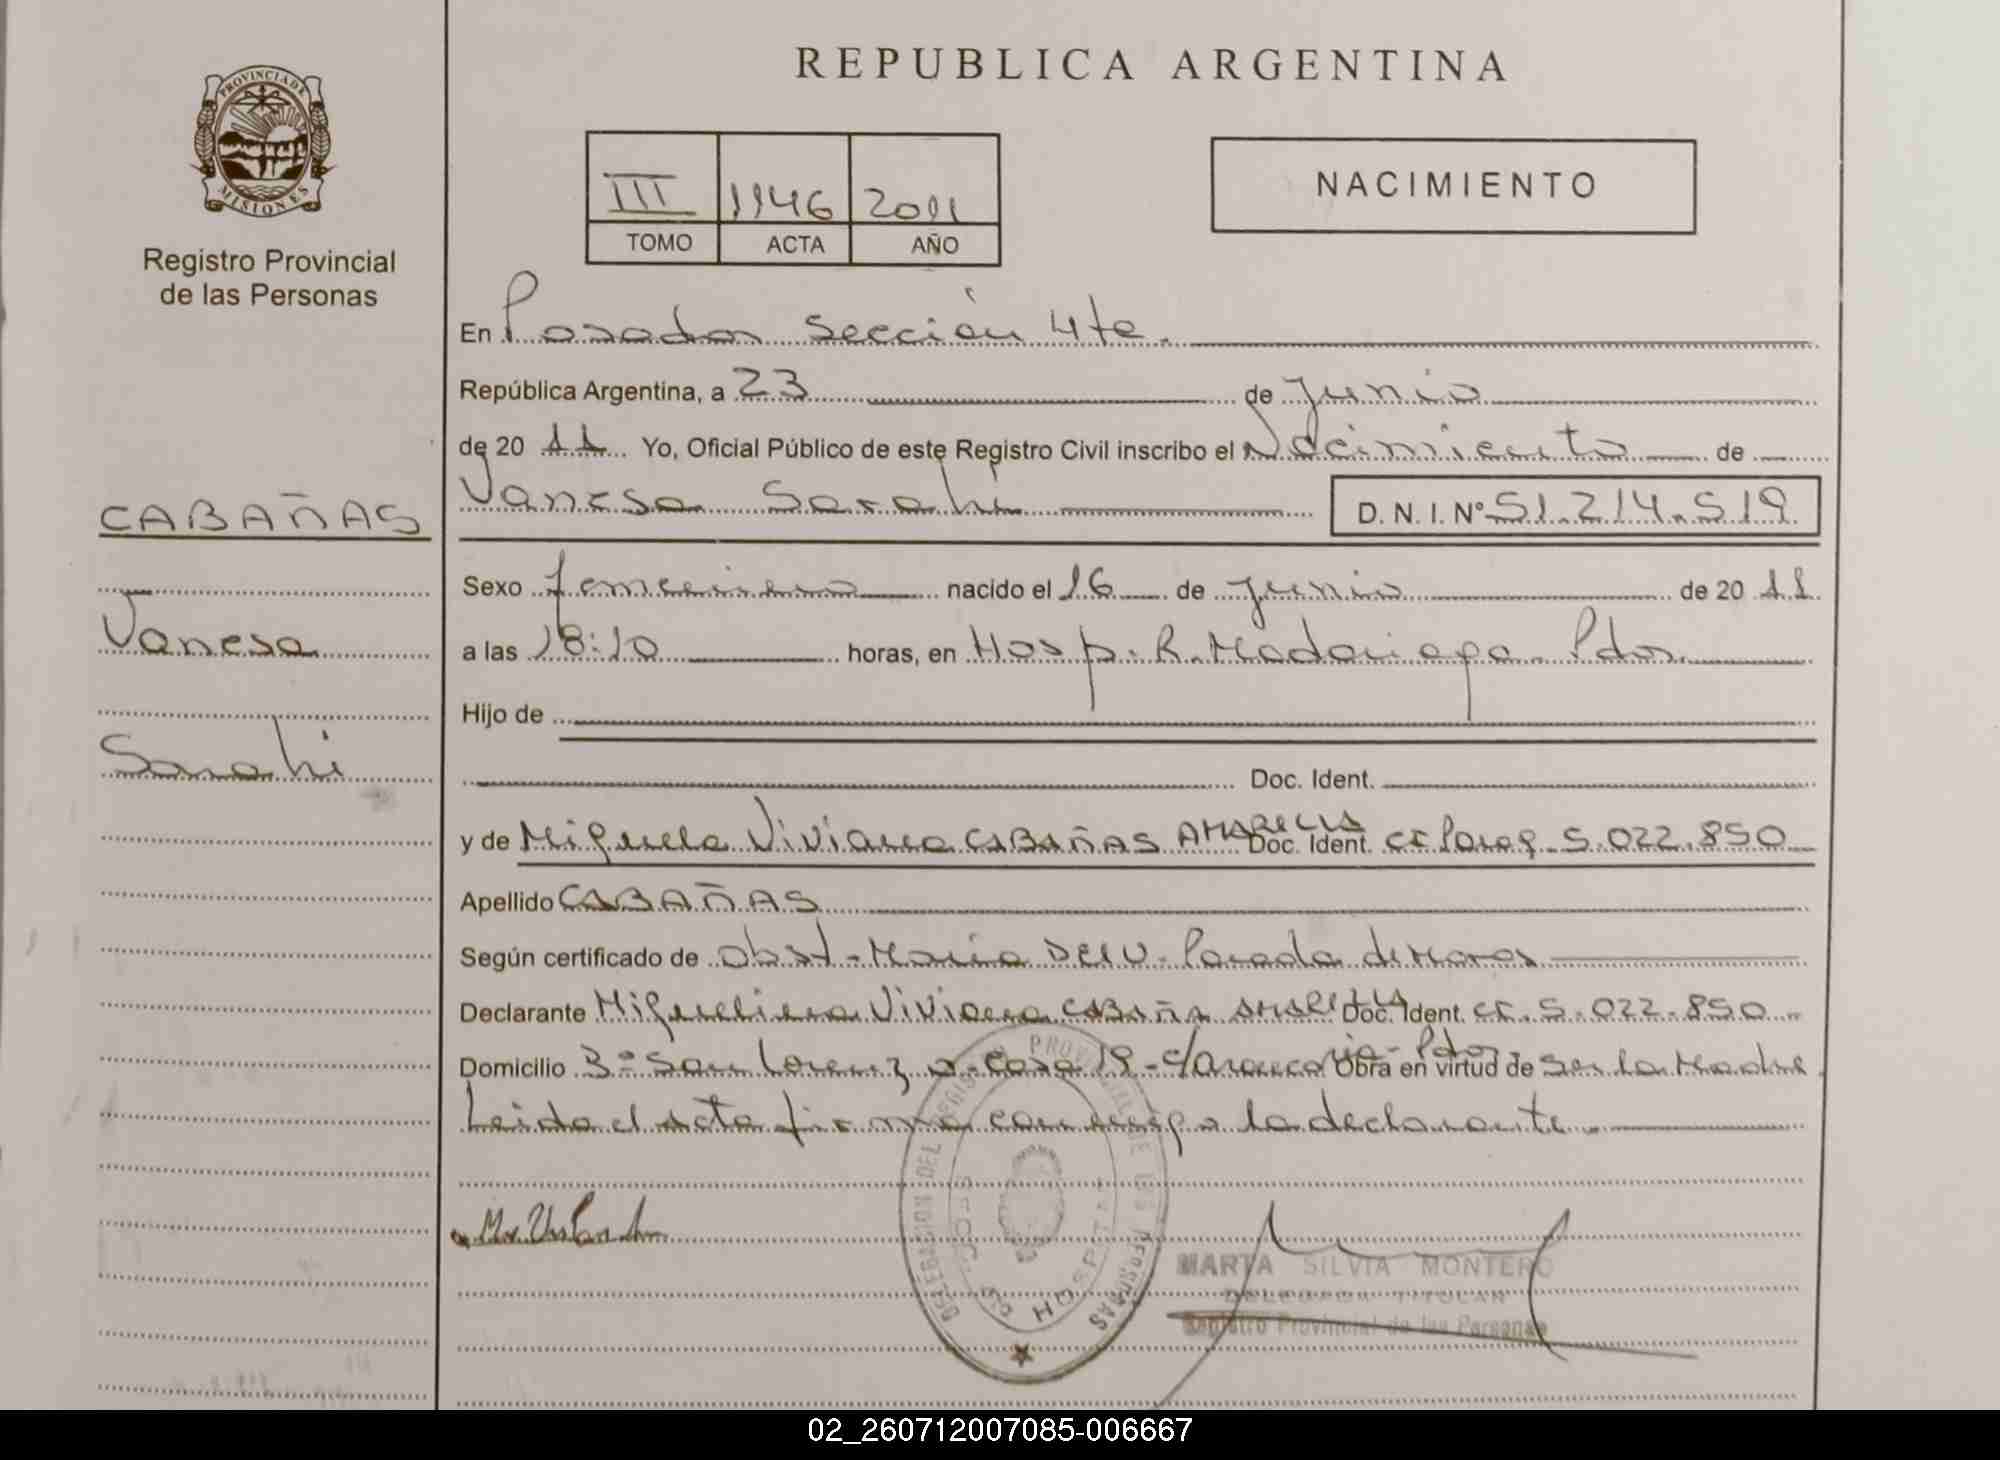 PROVINCIA DE
MISIONES
Registro Provincial
de las Personas
CABAÑAS
Vanesa
Sarahi
REPUBLICA ARGENTINA
III 1146 2011
TOMO ACTA AÑO
NACIMIENTO
En Posadas Sección 4ta.
República Argentina, a 23 de Junio
de 20 11 Yo, Oficial Público de este Registro Civil inscribo el Nacimiento de
Vanesa Sarahi D. N. I. Nº 51.214.519
Sexo femenino nacido el 16 de Junio de 20 11
a las 18:10 horas, en Hosp. R. Madariaga - Pdas.
Hijo de
Doc. Ident.
y de Miguela Viviana CABAÑAS AMARILLA Doc. Ident. CI Parag. 5.022.850
Apellido CABAÑAS
Según certificado de Obst. María DEL V. Parada de Mores
Declarante Miguelina Viviana CABAÑA AMARILLA Doc. Ident. CI. 5.022.850
Domicilio Bº San Lorenzo - Casa 19 - C/Araucaria - Pdas Obra en virtud de ser la Madre
Leida el acta firma conmigo la declarante.
DELEGACION DEL REGISTRO PROVINCIAL DE LAS PERSONAS
HOSPITAL
MARTA SILVIA MONTERO
DELEGADA TITULAR
Registro Provincial de las Personas
02_260712007085-006667